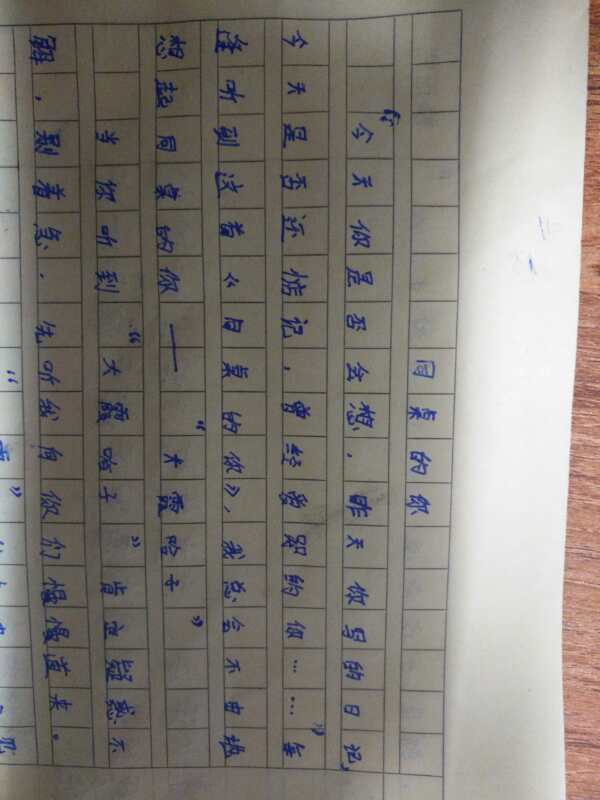 同桌的你
“今天你是否会想，昨天你写的日记，
今天是否还惦记，曾经爱哭的你……”每
逢听到这首《同桌的你》，我总会不由地
想起同桌的你——“大霞哈子”
当你听到“大霞哈子”肯定疑惑不
解，别着急，先听我向你们慢慢道来。